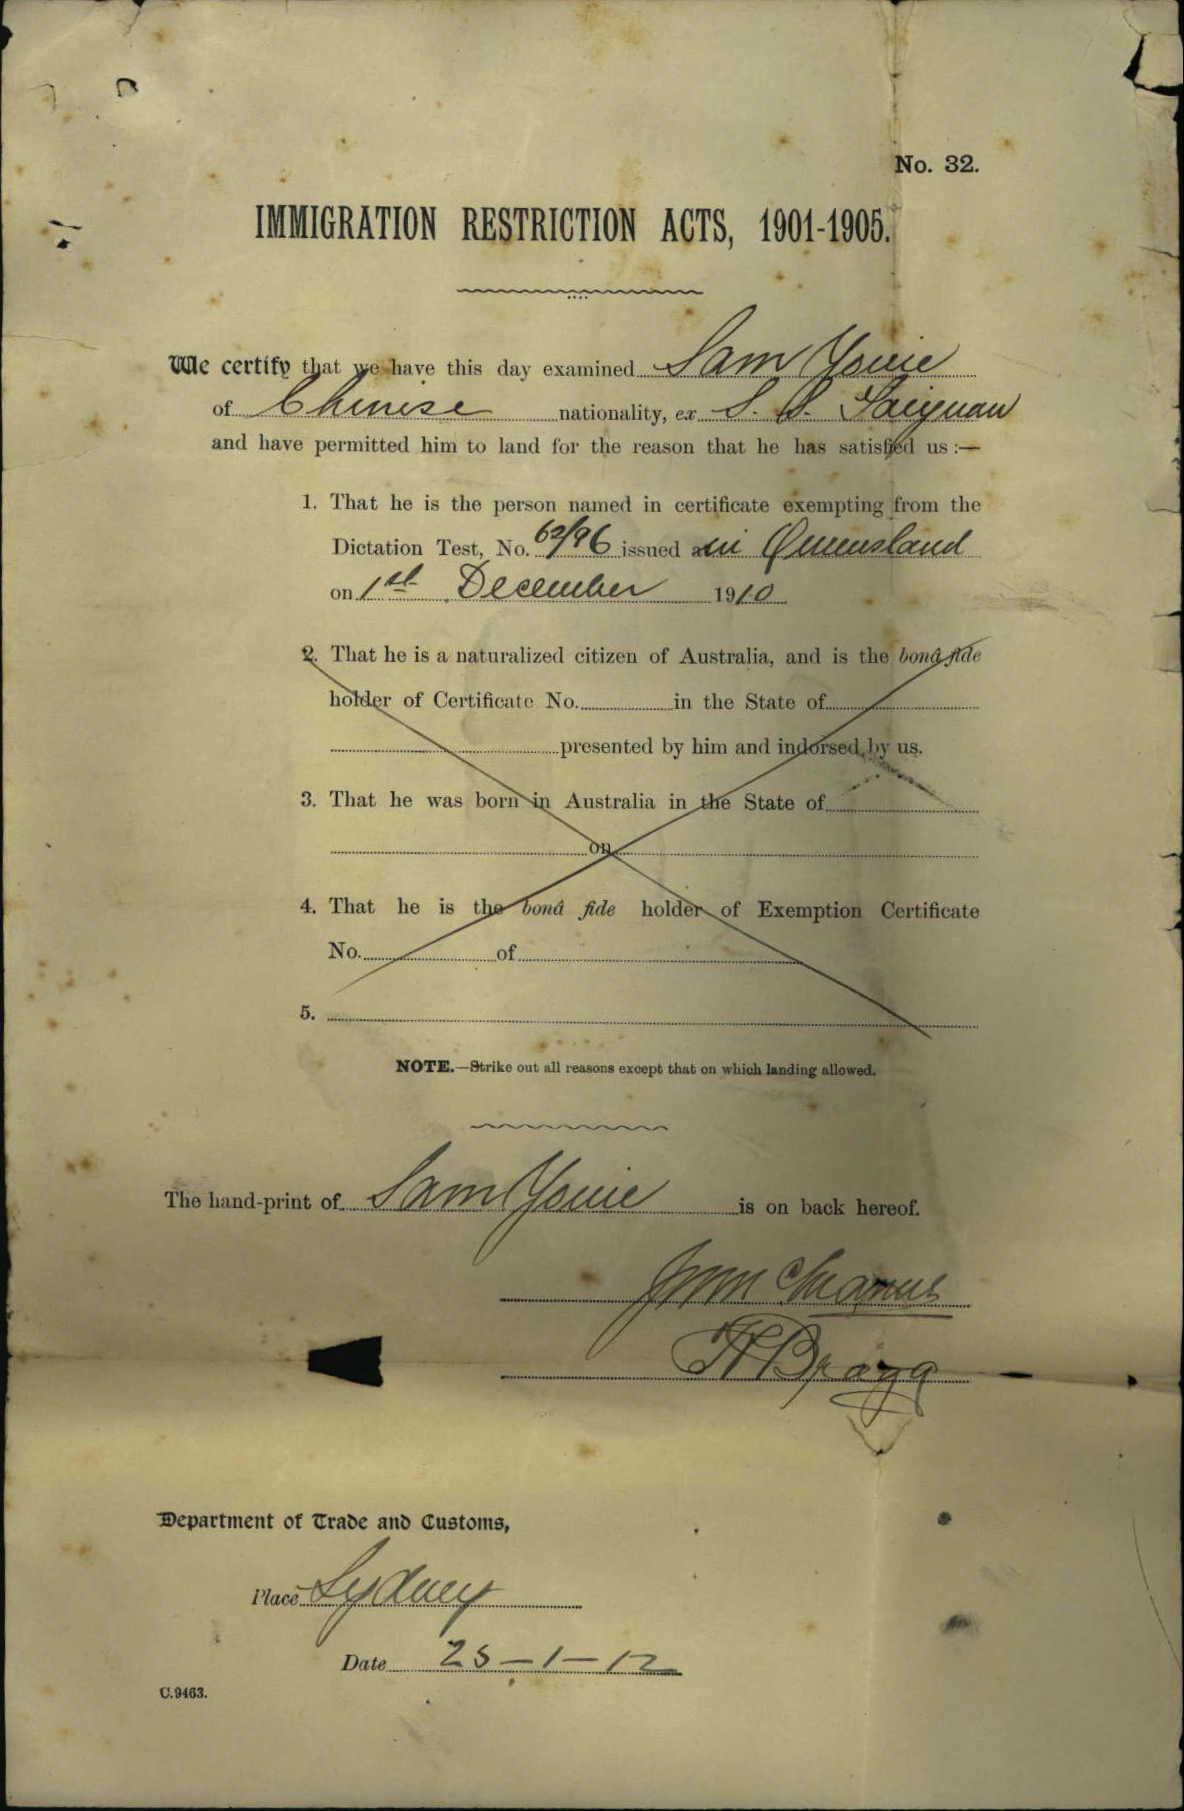 No. 32.
IMMIGRATION RESTRICTION ACTS, 1901-1905.
We certify that we have this day examined Sam Younie
of Chinese nationality, ex S. S. Taiyuan
and have permitted him to land for the reason that he has satisfied us :—
1. That he is the person named in certificate exempting from the
Dictation Test, No. 62/96 issued in Queensland
on 1st December 1910
2. That he is a naturalized citizen of Australia, and is the bonâ fide
holder of Certificate No. in the State of
presented by him and indorsed by us.
3. That he was born in Australia in the State of
on
4. That he is the bonâ fide holder of Exemption Certificate
No. of
5.
NOTE.—Strike out all reasons except that on which landing allowed.
The hand-print of Sam Younie is on back hereof.
Bragg
Department of Trade and Customs,
Place Sydney
Date 25-1-12
C.9463.